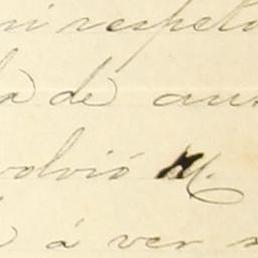 mi respeto
da de aus
volvió M.
á ver